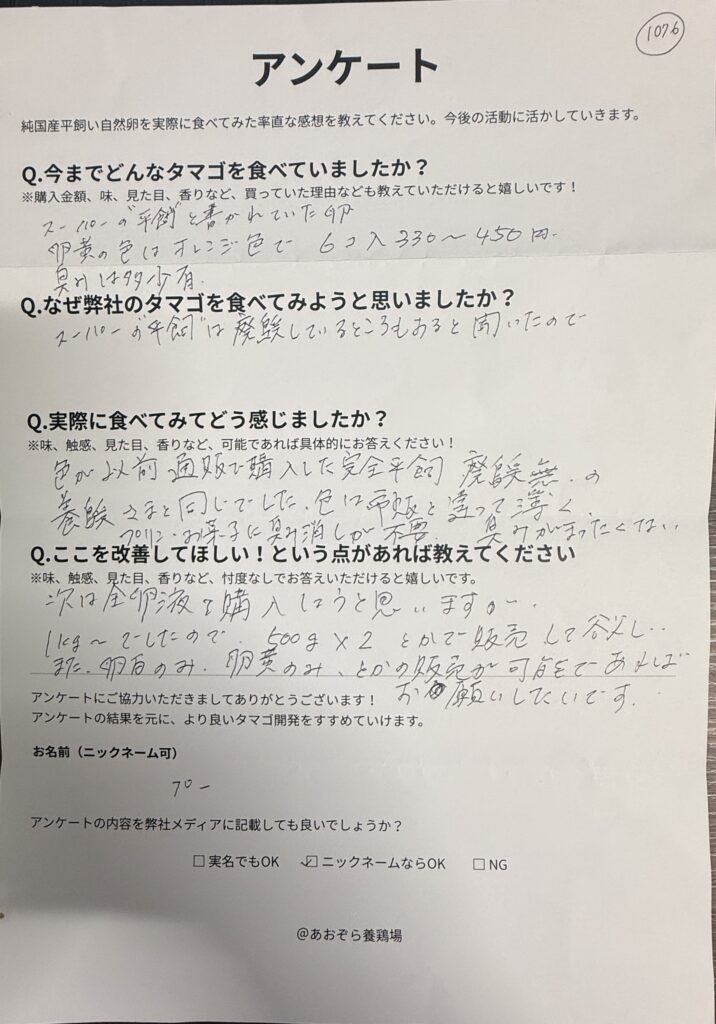 1076
アンケート
純国産平飼い自然卵を実際に食べてみた率直な感想を教えてください。今後の活動に活かしていきます。
Q.今までどんなタマゴを食べていましたか？
※購入金額、味、見た目、香りなど、買っていた理由なども教えていただけると嬉しいです！
スーパーの"平飼"と書かれていた卵
卵黄の色はオレンジ色で 6コ入330〜450円.
臭みは多少有.
Q.なぜ弊社のタマゴを食べてみようと思いましたか？
スーパーの"平飼"は廃鶏しているところもあると聞いたので
Q.実際に食べてみてどう感じましたか？
※味、触感、見た目、香りなど、可能であれば具体的にお答えください！
色が以前通販で購入した完全平飼 廃鶏無.の
養鶏さまと同じでした.色は市販と違って薄く.
プリン・お菓子に臭み消しが不要. 臭みがまったくない
Q.ここを改善してほしい！という点があれば教えてください
※味、触感、見た目、香りなど、忖度なしでお答えいただけると嬉しいです。
次は全卵液で購入しようと思いますが.
1kg〜でしたので. 500g×2 とかで販売して欲しい.
また.卵白のみ.卵黄のみ、とかの販売が可能であれば
お願いしたいです.
アンケートにご協力いただきましてありがとうございます！
アンケートの結果を元に、より良いタマゴ開発をすすめていけます。
お名前（ニックネーム可）
プー
アンケートの内容を弊社メディアに記載しても良いでしょうか？
□ 実名でもOK ☑ ニックネームならOK □ NG
@あおぞら養鶏場